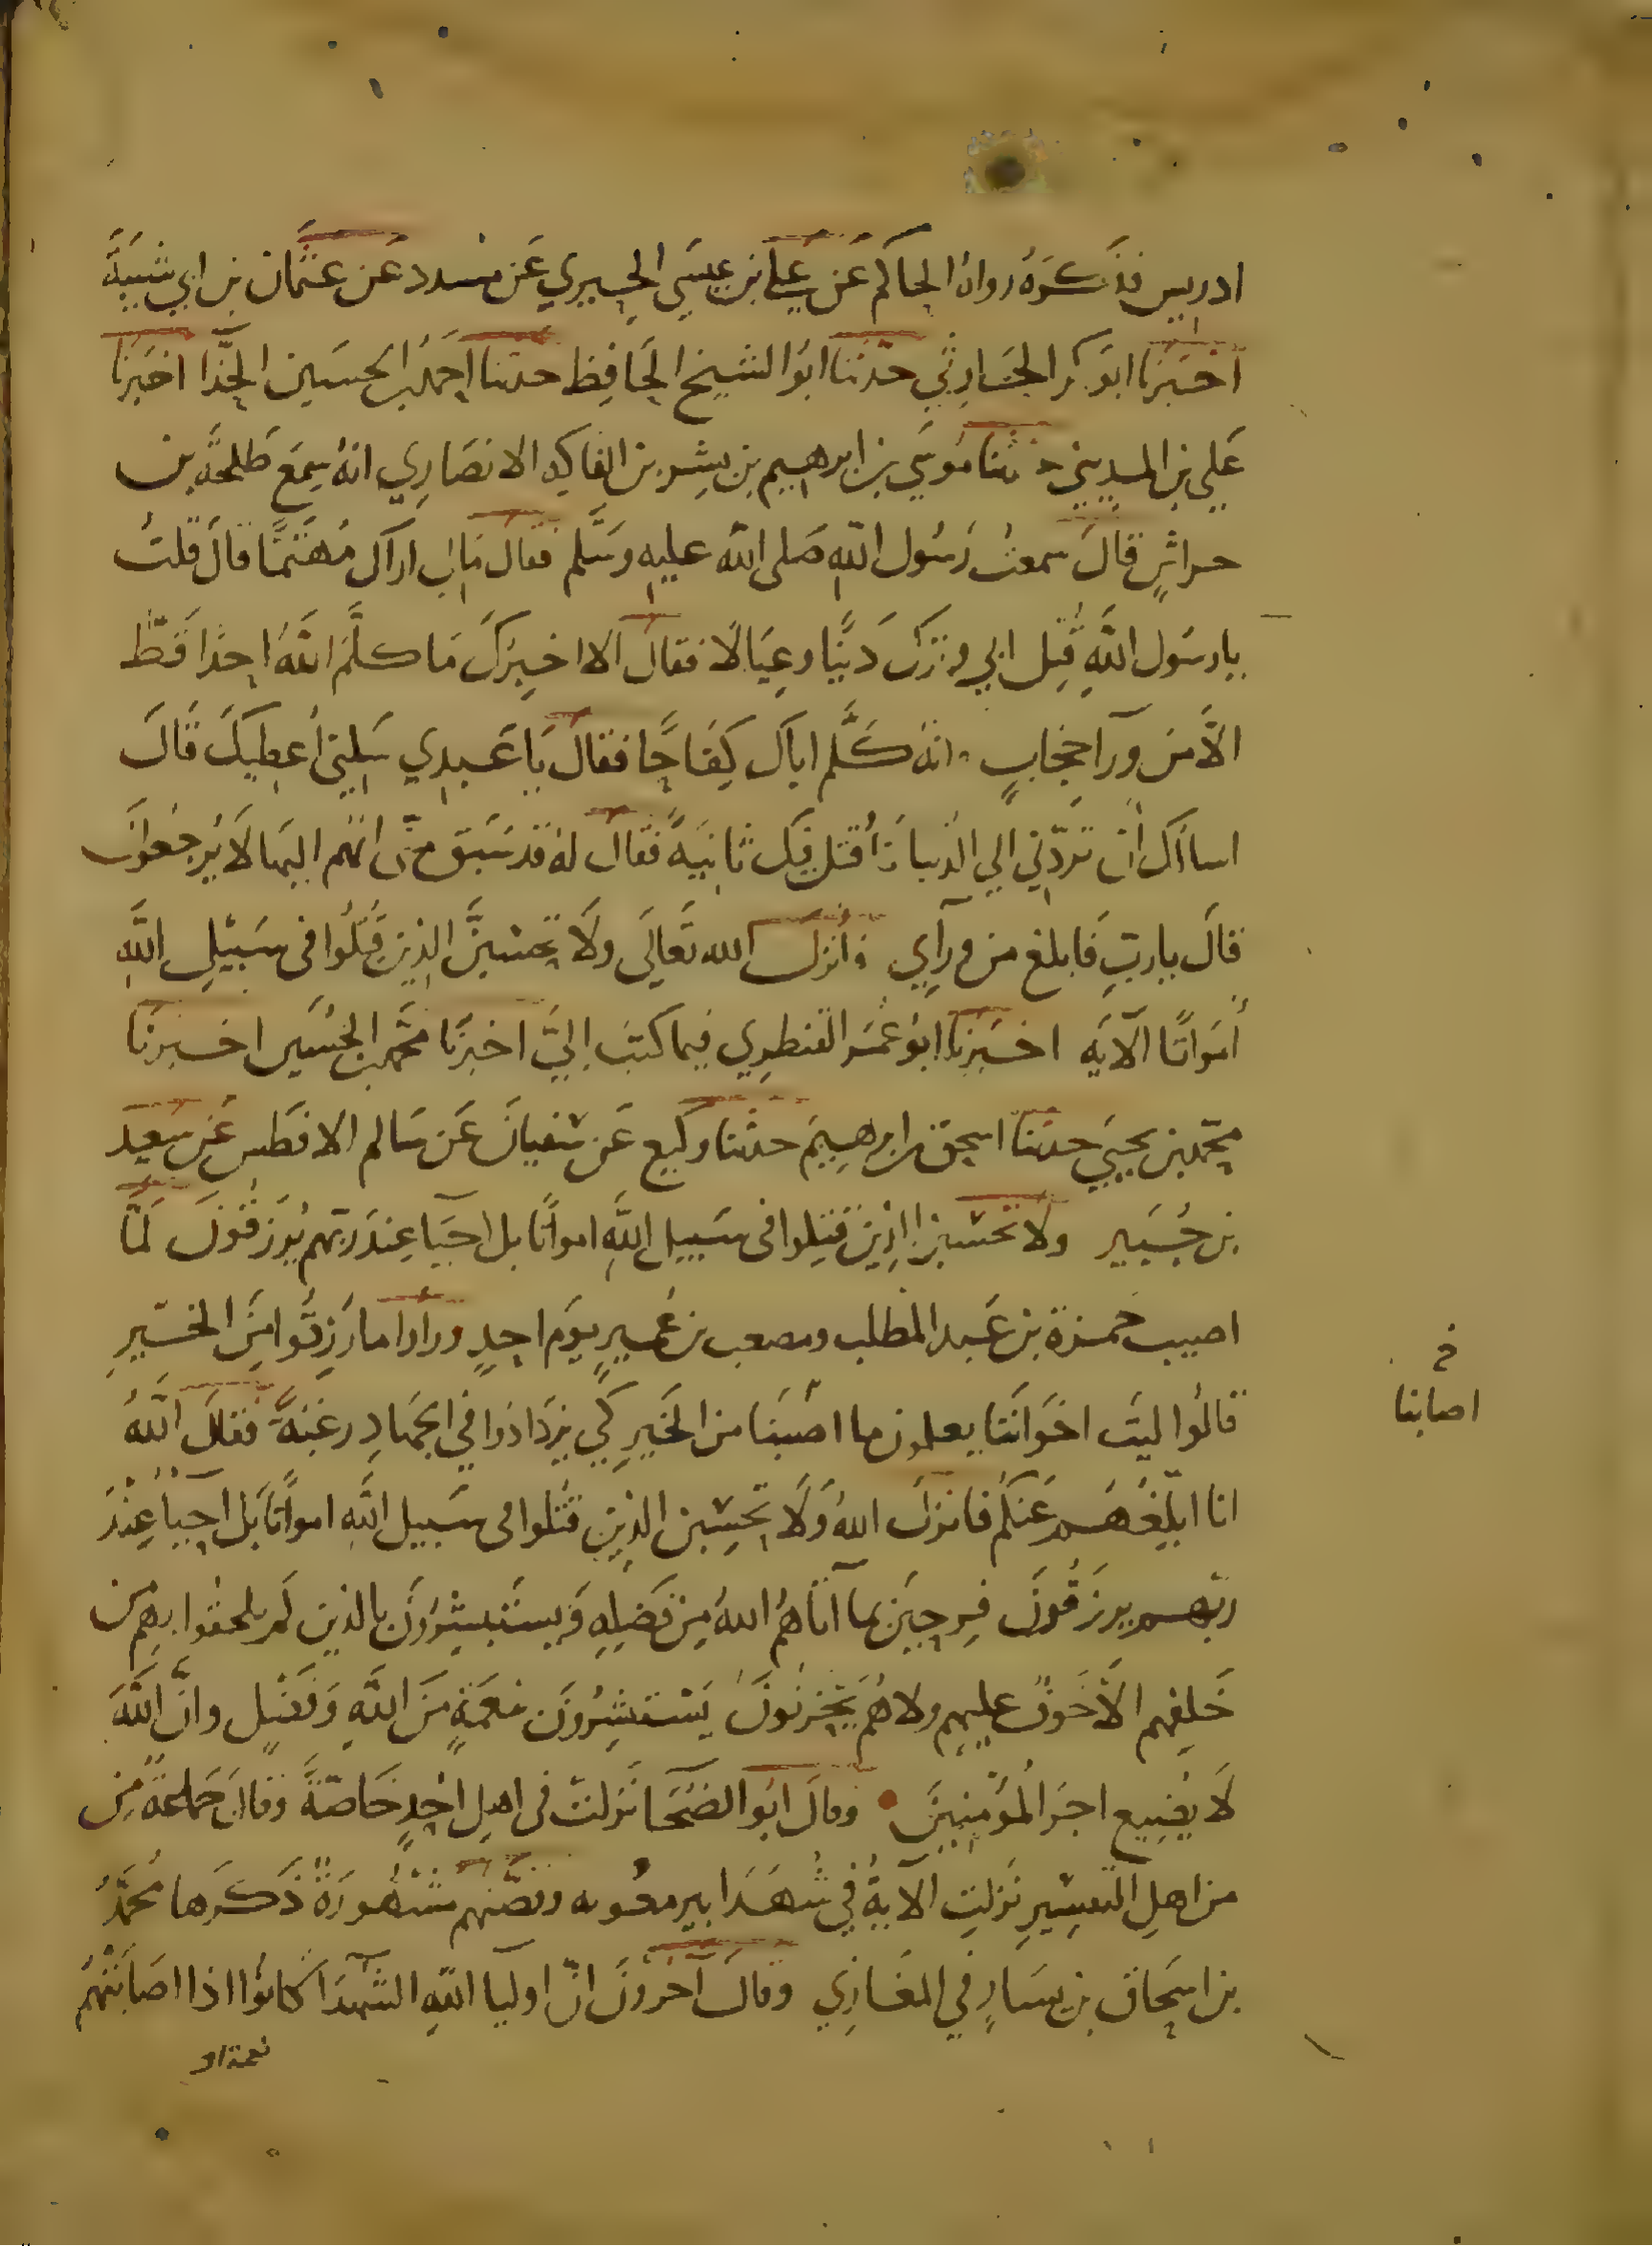 ادريس فذَكَرَهُ رواه الحاكم عَن عَلِي بن عيسَى الحِيري عَن مسدد عَن عثمَان بن ابي شَيبَةَ
اخبَرَنا ابو بكر الحَارِثي حدثنا ابوُ الشيخ الحَافِظ حدثنا احمَد بن الحسَين الحَذّا اخبَرنا
عَلي بن المديني حدثنا مُوسَى بن ابرهيم بن بشِر بن الفاكِه الانصَارِي انهُ سِمَع طَلحَةَ بن
حراشٍ قالَ سمعتُ رَسُول اللهِ صَلى الله عليه وسَلَّم فقال مَا لي اراك مُهتَمًّا قالَ قلتُ
يا رسَول اللهِ قُتِل ابي وترَك دَينًا وعِيَالًا فقالَ الا اخبِرُكَ مَا كلَّمَ اللهُ احدًا قَطّ
الَّا من ورآ حجَابٍ وانهُ كَلَّم اباك كِفَاحًا فقالَ يَا عَبدي سَلني أُعطِيكَ قَالَ
اسألك أن تَردّني الي الدُنيا فأُقتل فيك ثانيَةً فقالَ لهُ قد سَبَق منّي انهم اليهَا لَا يُرجَعُونَ
قالَ يا ربِّ فابلغ من ورآيي فأنزَلَ الله تَعالَى ولَا تحسَبنَّ الذين قُتِلُوا في سَبيْلِ اللهِ
أمَواتًا الآيَه اخبَرَنا ابوُ عُمَر القنطرِي فيما كتبَ اليَّ اخبرَنا محمّد بن الحُسَين اخبرنَا
محمّد بن يحييَ حدثنا اسحق بن ابرهِيمَ حدثنا وكيع عَن سُفيانَ عَن سَالم الافطَس عَن سَعِيد
بن جُبَير ولا تحسَبن الذين قُتِلوا في سَبيل اللهِ امواتًا بل احيَا عِندَ ربّهم يُرزَقُونَ لَمّا
اصيب حمزة بن عَبد المُطلب ومصعب بن عُمَيرٍ يوَم احدٍ وراوا ما رُزِقُوا مِنَ الخَيرِ
قالُوا ليتَ اخوَاننَا يعلمون ما اصَبنَا من الخَيرِ كَي يزدَادُوا في الجِهَادِ رغبَةً فقالَ اللهُ
انا ابلِّغُهُم عَنكُم فانزَلَ اللهُ وَلَا تحسِبن الذين قُتلوا في سَبيل اللهِ امواتًا بَل احيَا عِنْدَ
ربّهم يرزَقُونَ فرحِين بما آتاهُم اللهُ مِن فَضلِهِ وَيستَبشِرُونَ بالذين لَم يلحقُوا بهِم من
خَلفِهم الَّا خَوفٌ عليهم ولا هُم يَحزنُونَ يَسْتَبشِرُونَ بنعمَةٍ مِنَ اللهِ وَفَضْلٍ وانَّ اللهَ
لَا يُضِيع اجرَ المُؤمِنِينَ وقالَ ابوُ الضُحَا نَزلتْ في اهلِ احُدٍ خَاصّةً وقالَ جمَاعة من
من اهلِ التفسِيرِ نَزلتِ الآيةُ في شُهَدَا بير معُونه وقصّتهم مشهُورَةٌ ذَكَرَها مُحمّدُ
بن اسحَاق بن يسَارٍ في المغَازِي وقالَ آخَرُونَ انّ اوليآ اللهِ الشهدَا كانوُا اذا اصَابَتْهُم
نعمة او
خ
اصابنا